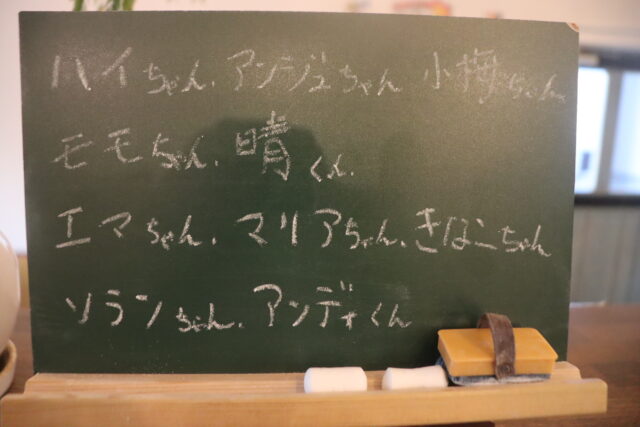 ハイちゃん.アンジュちゃん 小梅ちゃん
モモちゃん.晴くん.
エマちゃん.マリアちゃん.きなこちゃん
ソランちゃん.アンディくん